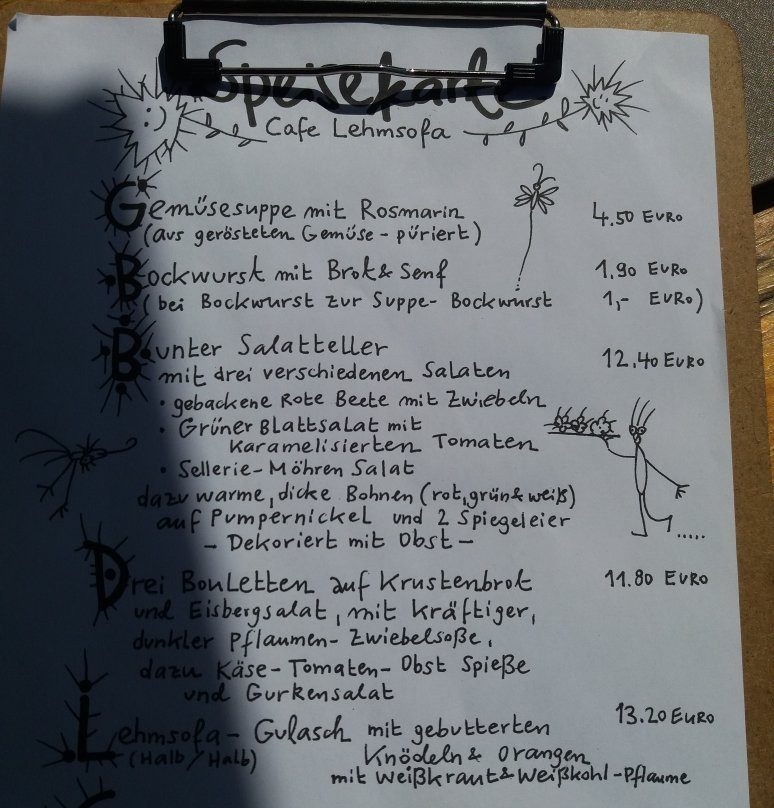 Speisekarte
Cafe Lehmsofa
Gemüsesuppe mit Rosmarin 4.50 Euro
(aus gerösteten Gemüse - püriert)
Bockwurst mit Brot & Senf 1,90 Euro
(bei Bockwurst zur Suppe - Bockwurst 1,- Euro)
Bunter Salatteller 12.40 Euro
mit drei verschiedenen Salaten
• gebackene Rote Beete mit Zwiebeln
• Grüner Blattsalat mit
Karamelisierten Tomaten
• Sellerie-Möhren Salat
dazu warme, dicke Bohnen (rot, grün & weiß)
auf Pumpernickel und 2 Spiegeleier
- Dekoriert mit Obst -
Drei Bouletten auf Krustenbrot 11.80 Euro
und Eisbergsalat, mit kräftiger,
dunkler Pflaumen-Zwiebelsoße,
dazu Käse-Tomaten-Obst Spieße
und Gurkensalat
Lehmsofa-Gulasch mit gebutterten 13.20 Euro
(Halb/Halb) Knödeln & Orangen
mit Weißkraut & Weißkohl-Pflaume